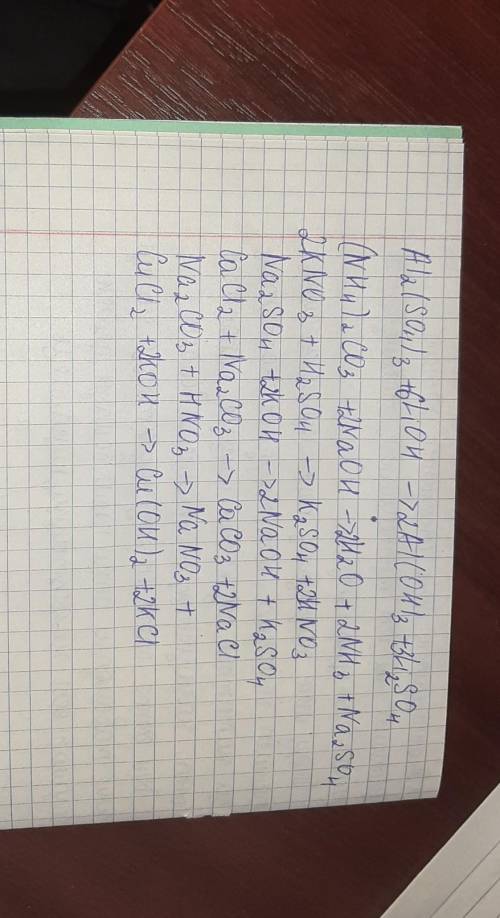 Al2(SO4)3 + 6KOH -> 2Al(OH)3 + 3K2SO4
(NH4)2CO3 + 2NaOH -> 2H2O + 2NH3 + Na2SO4
2KNO3 + H2SO4 -> K2SO4 + 2HNO3
Na2SO4 + 2KOH -> 2NaOH + K2SO4
CaCl2 + Na2CO3 -> CaCO3 + 2NaCl
Na2CO3 + HNO3 -> NaNO3 +
CuCl2 + 2KOH -> Cu(OH)2 + 2KCl